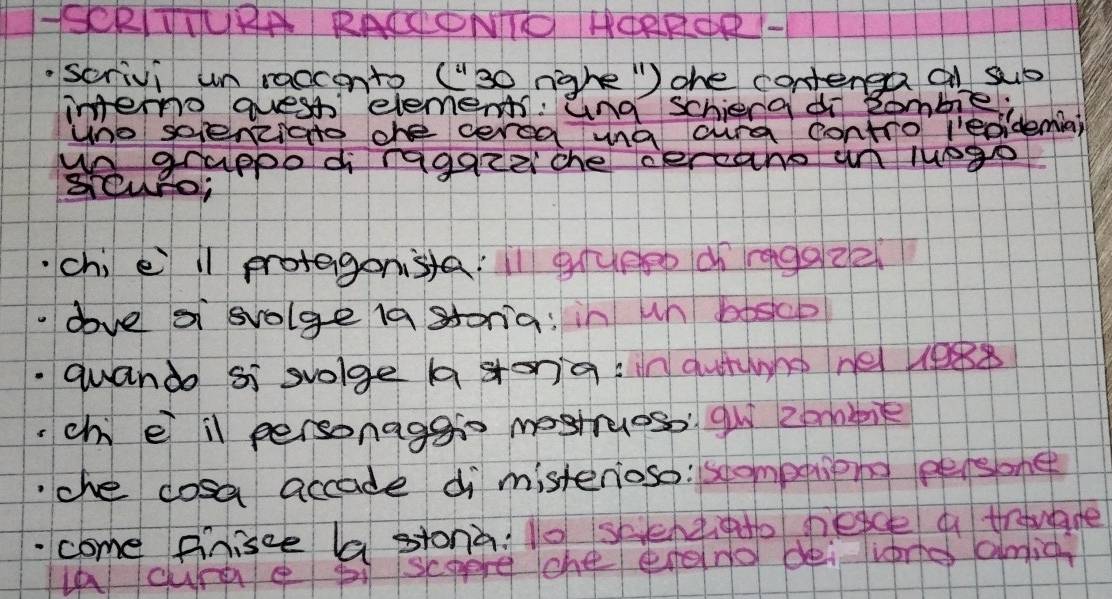 -SCRITTURA RACCONTO HORROR-
• scrivi un racconto ("30 righe") che contenga al suo
interno questi elementi: una schiera di zombie;
uno scienziato che cerca una cura contro l'epidemia;
un gruppo di ragazzi che cercano un luogo
sicuro;
• chi è il protagonista: il gruppo di ragazzi
• dove si svolge la storia: in un bosco
• quando si svolge la storia: in autunno nel 1988
• chi è il personaggio mostruoso: gli zombie
• che cosa accade di misterioso: scompaiono persone
• come finisce la storia: lo scienziato riesce a trovare
la cura e si scopre che erano dei loro amici